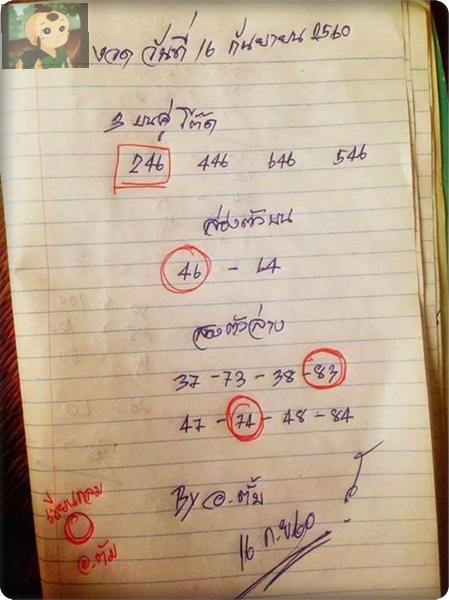 งวด วันที่ 16 กันยายน 2560
3 บนคู่ โต๊ด
246 446 646 546
สองตัวบน
46 - 64
สองตัวล่าง
37 - 73 - 38 - 83
47 - 74 - 48 - 84
By อ.ตั้ม
16 ก.ย 60
เซียนกลม
อ.ตั้ม